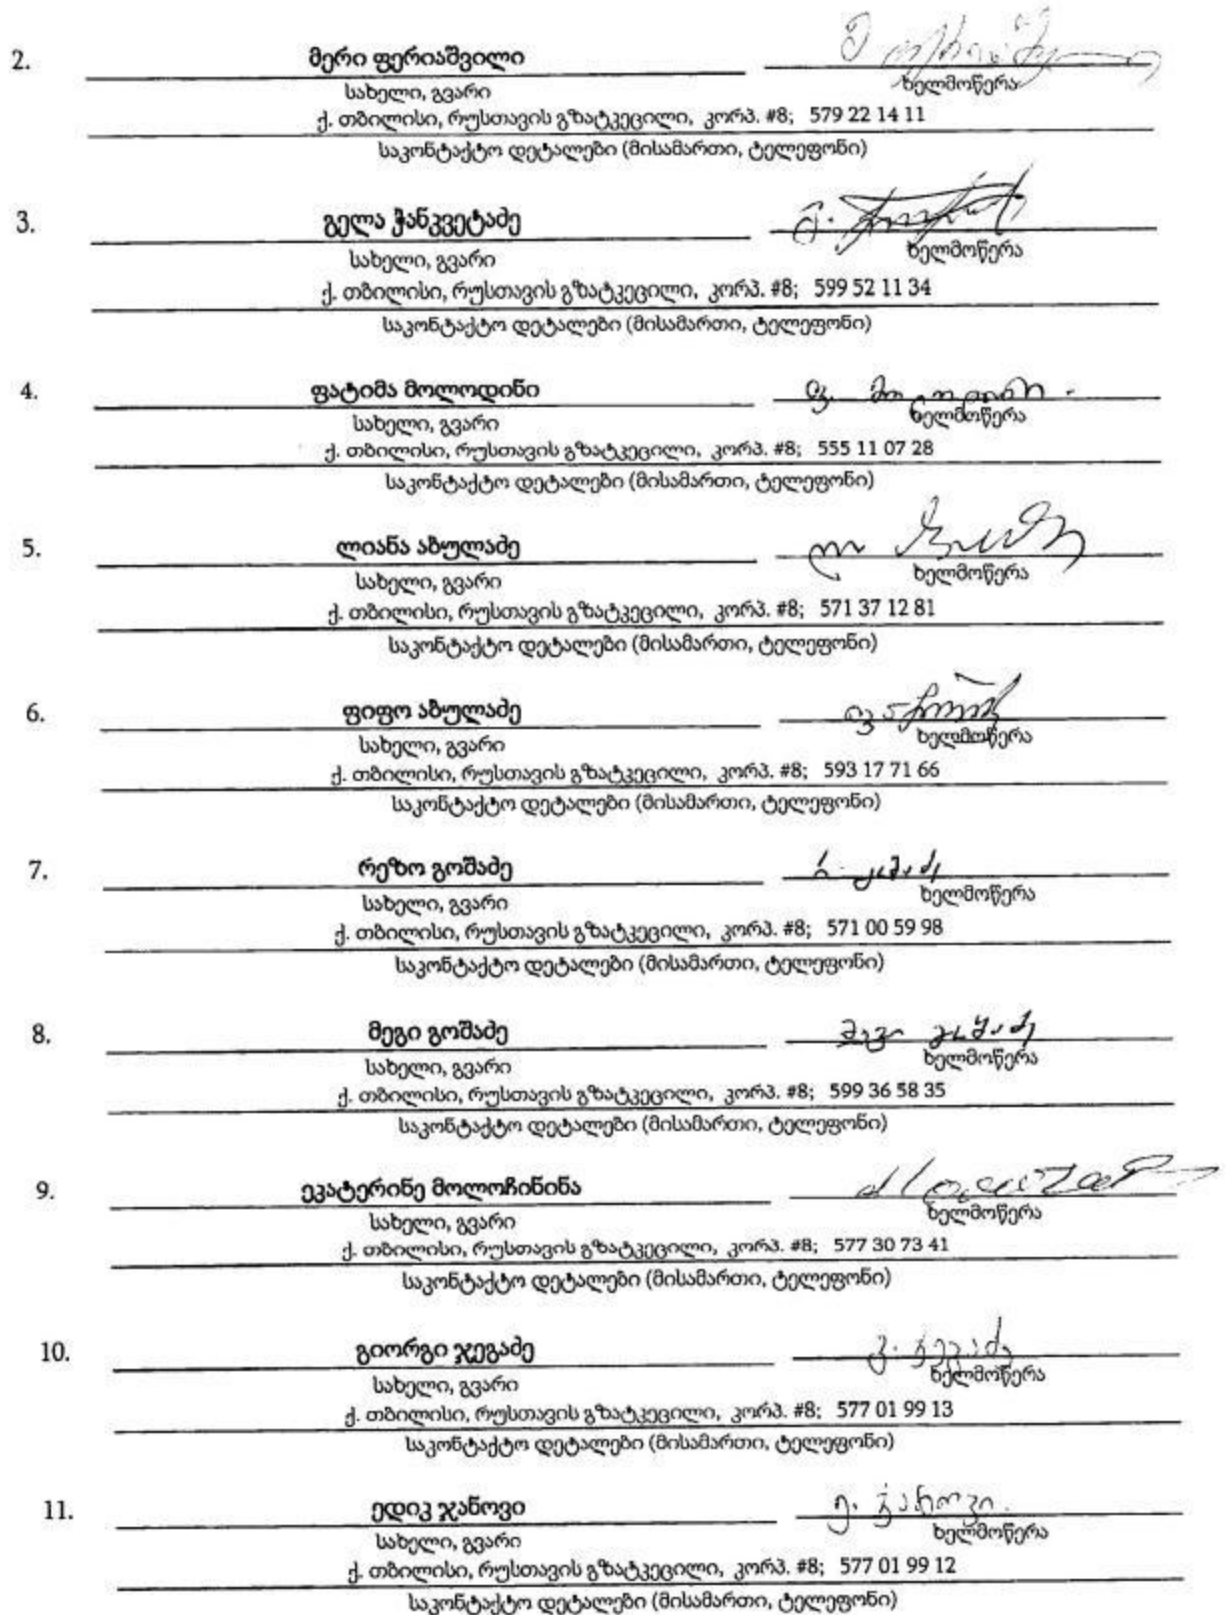 2. მერი ფერიაშვილი
სახელი, გვარი ხელმოწერა
ქ. თბილისი, რუსთავის გზატკეცილი, კორპ. #8; 579 22 14 11
საკონტაქტო დეტალები (მისამართი, ტელეფონი)
3. გელა ჭანკვეტაძე
სახელი, გვარი ხელმოწერა
ქ. თბილისი, რუსთავის გზატკეცილი, კორპ. #8; 599 52 11 34
საკონტაქტო დეტალები (მისამართი, ტელეფონი)
4. ფატიმა მოლოდინი ფ. მოლოდინი.
სახელი, გვარი ხელმოწერა
ქ. თბილისი, რუსთავის გზატკეცილი, კორპ. #8; 555 11 07 28
საკონტაქტო დეტალები (მისამართი, ტელეფონი)
5. ლიანა აბულაძე
სახელი, გვარი ხელმოწერა
ქ. თბილისი, რუსთავის გზატკეცილი, კორპ. #8; 571 37 12 81
საკონტაქტო დეტალები (მისამართი, ტელეფონი)
6. ფიფო აბულაძე
სახელი, გვარი ხელმოწერა
ქ. თბილისი, რუსთავის გზატკეცილი, კორპ. #8; 593 17 71 66
საკონტაქტო დეტალები (მისამართი, ტელეფონი)
7. რეზო გოშაძე რ. გოშაძე
სახელი, გვარი ხელმოწერა
ქ. თბილისი, რუსთავის გზატკეცილი, კორპ. #8; 571 00 59 98
საკონტაქტო დეტალები (მისამართი, ტელეფონი)
8. მეგი გოშაძე მეგი გოშაძე
სახელი, გვარი ხელმოწერა
ქ. თბილისი, რუსთავის გზატკეცილი, კორპ. #8; 599 36 58 35
საკონტაქტო დეტალები (მისამართი, ტელეფონი)
9. ეკატერინე მოლოჩინინა
სახელი, გვარი ხელმოწერა
ქ. თბილისი, რუსთავის გზატკეცილი, კორპ. #8; 577 30 73 41
საკონტაქტო დეტალები (მისამართი, ტელეფონი)
10. გიორგი ჯეგაძე გ. ჯეგაძე
სახელი, გვარი ხელმოწერა
ქ. თბილისი, რუსთავის გზატკეცილი, კორპ. #8; 577 01 99 13
საკონტაქტო დეტალები (მისამართი, ტელეფონი)
11. ედიკ ჯანოვი ე. ჯანოვი.
სახელი, გვარი ხელმოწერა
ქ. თბილისი, რუსთავის გზატკეცილი, კორპ. #8; 577 01 99 12
საკონტაქტო დეტალები (მისამართი, ტელეფონი)